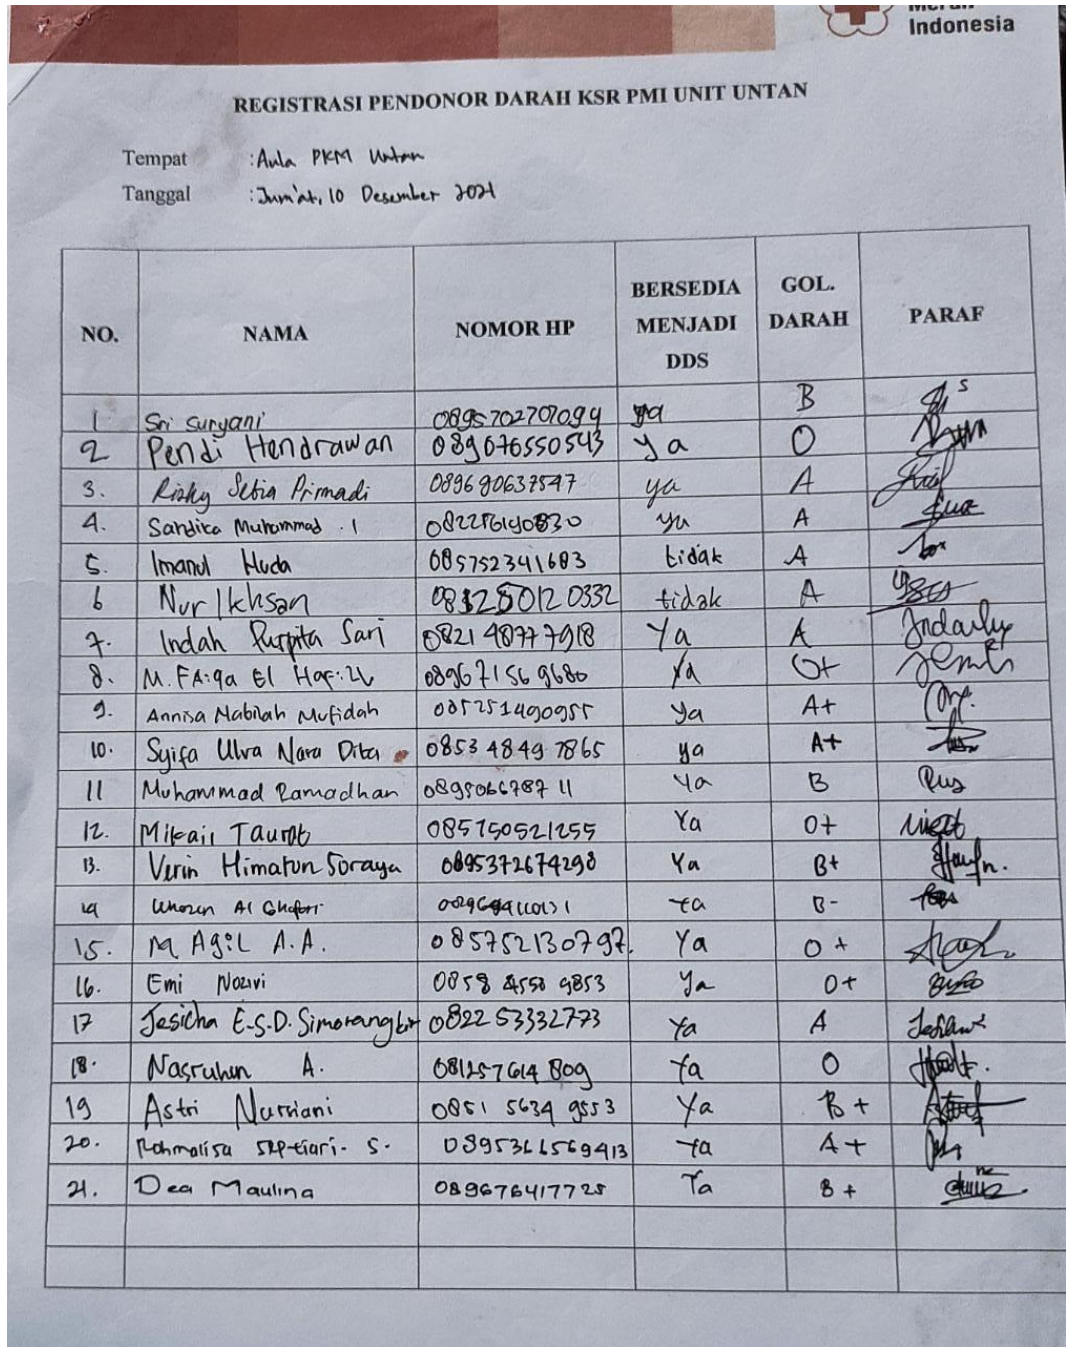 Indonesia
REGISTRASI PENDONOR DARAH KSR PMI UNIT UNTAN
Tempat : Aula PKM Untan
Tanggal : Jum'at, 10 Desember 2021
NO. NAMA NOMOR HP BERSEDIA MENJADI DDS GOL. DARAH PARAF
1 Sri Suryani 0895702707094 ya B
2 Pendi Hendrawan 089676550543 ya O
3. Rizky Setia Primadi 089690637547 ya A
4. Sandika Muhammad . I ya A
5. Imanul Huda 085752341683 tidak A
6 Nur Ikhsan 081250120332 tidak A
7. Indah Puspita Sari 0821 4877 7918 Ya A
8. M. FAiqa El 08967156 9680 ya O+
9. Annisa Nabilah Mufidah 085251490955 ya A+
10. Syifa Ulva Nara Dita 0853 4849 7865 ya A+
11 Muhammad Ramadhan 0895066787 11 Ya B
12. Mikail Taurat 085750521255 Ya O+
13. Verin Himatun Soraya 0895372674298 Ya B+
14 Al Ghofari Ya B-
15. M Agil A.A. 085752130797. Ya O +
16. Emi Noavi 0858 4558 9853 Ya O+
17 Jesicha E.S.D. Simorangkir 0822 53332773 Ya A
18. Nasruhun A. 081257614 809 Ya O
19 Astri Nursiani 0851 5634 9553 Ya B +
20. Rahmalisa Septiari. S. 0895366569413 Ya A +
21. Dea Maulina 089676417725 Ya B +